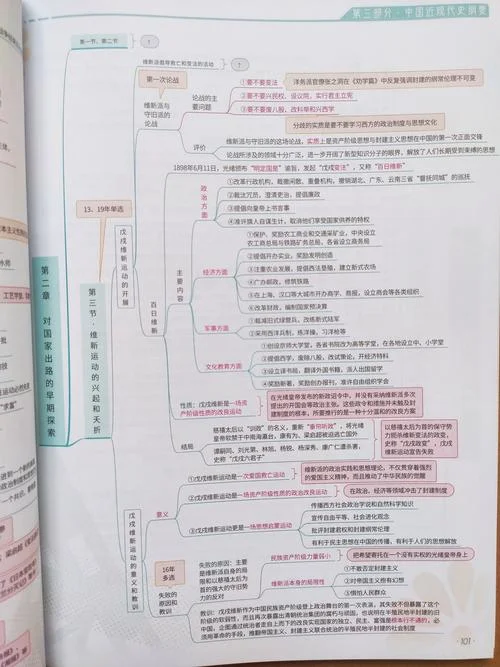 第三部分·中国近现代史纲要
第一节、第二节
维新派倡导救亡和变法的活动
第一次论战
维新派与
守旧派的
论战
论战的主
要问题
①要不要变法
②要不要兴民权、设议院，实行君主立宪
③要不要废八股、改科举和兴西学
洋务派官僚张之洞在《劝学篇》中反复强调封建的纲常伦理不可变
分歧的实质是要不要学习西方的政治制度与思想文化
评价
维新派与守旧派的这场论战，实质上是资产阶级思想与封建主义思想在中国的第一次正面交锋
论战所涉及的领域十分广泛，进一步开阔了新型知识分子的眼界，解放了人们长期受到束缚的思想
1898年6月11日，光绪颁布“明定国是”谕旨，发起“戊戌变法”，又称“百日维新”
13、19年单选
第二章 对国家出路的早期探索
第三节·维新运动的兴起和夭折
戊戌维新运动的开展
百日维新
主要内容
政治方面
①改革行政机构，裁撤闲散、重叠机构，撤销湖北、广东、云南三省“督抚同城”的巡抚
②裁汰冗员，澄清吏治，提倡廉政
③提倡向皇帝上书言事
④准许旗人自谋生计，取消他们享受国家供养的特权
经济方面
①保护、奖励农工商业和交通采矿业，中央设立
农工商总局与铁路矿务总局，各省设立商务局
②提倡开办实业，奖励发明创造
③注重农业发展，提倡西法垦殖，建立新式农场
④广办邮政，修筑铁路
⑤在上海、汉口等大城市开办商学、商报，设立商会等各类组织
⑥改革财政，编制国家预决算
军事方面
①裁减旧式绿营兵，改练新式陆军
②采用西洋兵制，练洋操，习洋枪等
文化教育方面
①创设京师大学堂，各省书院改为高等学堂，在各地设立中、小学堂
②提倡西学，废除八股，改试策论，开经济特科
③设立译书局，翻译外国书籍，派人出国留学
④奖励新著，奖励创办报刊，准许自由组织学会
性质：戊戌维新是一场资
产阶级性质的改良运动
在光绪皇帝发布的新政诏令中，并没有采纳维新派多次
提出的开国会等政治主张。这些政令和措施并未触及封
建制度的根本，所要推行的是一种十分温和的改良方案
结局
慈禧太后以“训政”的名义，重新“垂帘听政”，将光绪
皇帝软禁于中南海瀛台，康有为、梁启超被迫逃亡国外
谭嗣同、刘光第、林旭、杨锐、杨深秀、康广仁遭杀害，
史称“戊戌六君子”
以慈禧太后为首的保守势
力扼杀维新变法的政变，
史称“戊戌政变”，戊戌
维新运动宣告失败
戊戌维新运动的意义和教训
意义
①戊戌维新运动是一次爱国救亡运动
维新派的政治实践和思想理论，不仅贯穿着强烈
的爱国主义精神，而且推动了中华民族的觉醒
②戊戌维新运动是一场资产阶级性质的政治改良运动
在政治、经济等领域冲击了封建制度
③戊戌维新运动更是一场思想启蒙运动
传播西方社会政治学说和自然科学知识
宣传自由平等、社会进化观念
批评封建君权和封建纲常伦理
有利于民主思想在中国的传播，有利于人们的思想解放
16年
多选
失败的
原因和
教训
失败的原因：主要
是维新派自身的局
限和以慈禧太后为
首的强大的守旧势
力的反对
民族资产阶级力量弱小
把希望寄托在一个没有实权的光绪皇帝身上
维新派本身的局限性
①不敢否定封建主义
②对帝国主义抱有幻想
③惧怕人民群众
教训：戊戌维新作为中国民族资产阶级登上政治舞台的第一次表演，其失败不但暴露了这个
阶级的软弱性，而且再次暴露出清朝统治集团的腐朽与顽固，也说明在半殖民地半封建的旧
中国，企图通过统治者走自上而下的改良实现国家的独立、民主、富强是根本行不通的，必
须用革命的手段，推翻帝国主义、封建主义联合统治的半殖民地半封建的社会制度
101